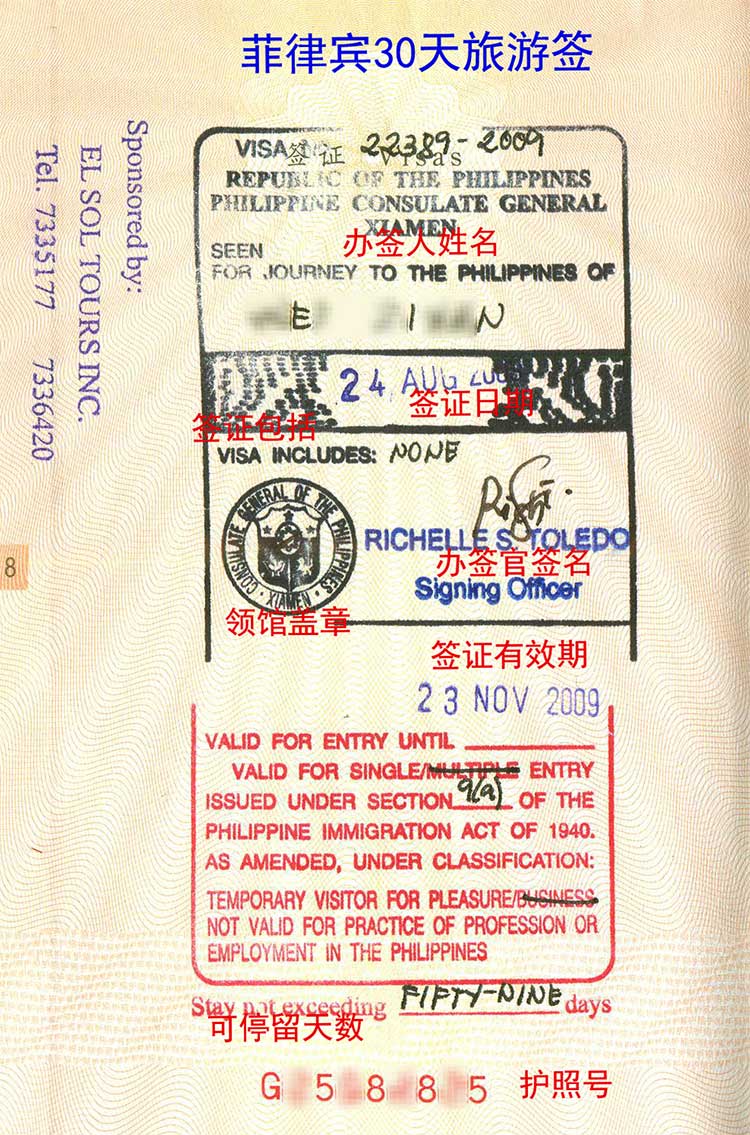 菲律宾30天旅游签
Sponsored by:
EL SOL TOURS INC.
Tel. 7335177 7336420
VISA 22389-2009
签证 Visas
REPUBLIC OF THE PHILIPPINES
PHILIPPINE CONSULATE GENERAL
XIAMEN
办签人姓名
SEEN
FOR JOURNEY TO THE PHILIPPINES OF
E I N
24 AUG
签证日期
签证包括
VISA INCLUDES: NONE
CONSULATE GENERAL OF THE PHILIPPINES
XIAMEN
RICHELLE S. TOLEDO
办签官签名
Signing Officer
领馆盖章
签证有效期
23 NOV 2009
VALID FOR ENTRY UNTIL
VALID FOR SINGLE/MULTIPLE ENTRY
ISSUED UNDER SECTION 9(a) OF THE
PHILIPPINE IMMIGRATION ACT OF 1940.
AS AMENDED, UNDER CLASSIFICATION:
TEMPORARY VISITOR FOR PLEASURE/BUSINESS
NOT VALID FOR PRACTICE OF PROFESSION OR
EMPLOYMENT IN THE PHILIPPINES
Stay not exceeding FIFTY-NINE days
可停留天数
G 5 8 8 5 护照号
8